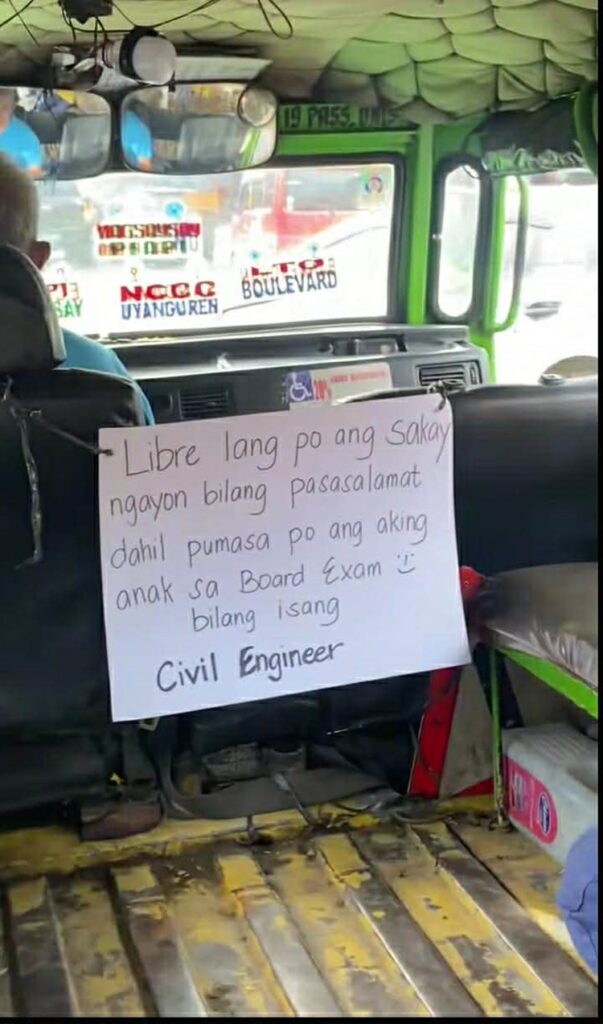 19 PASS.
MAGSAYSAY
NCCC
UYANGUREN
LTO
BOULEVARD
20%
Libre lang po ang sakay
ngayon bilang pasasalamat
dahil pumasa po ang aking
anak sa Board Exam
bilang isang
Civil Engineer